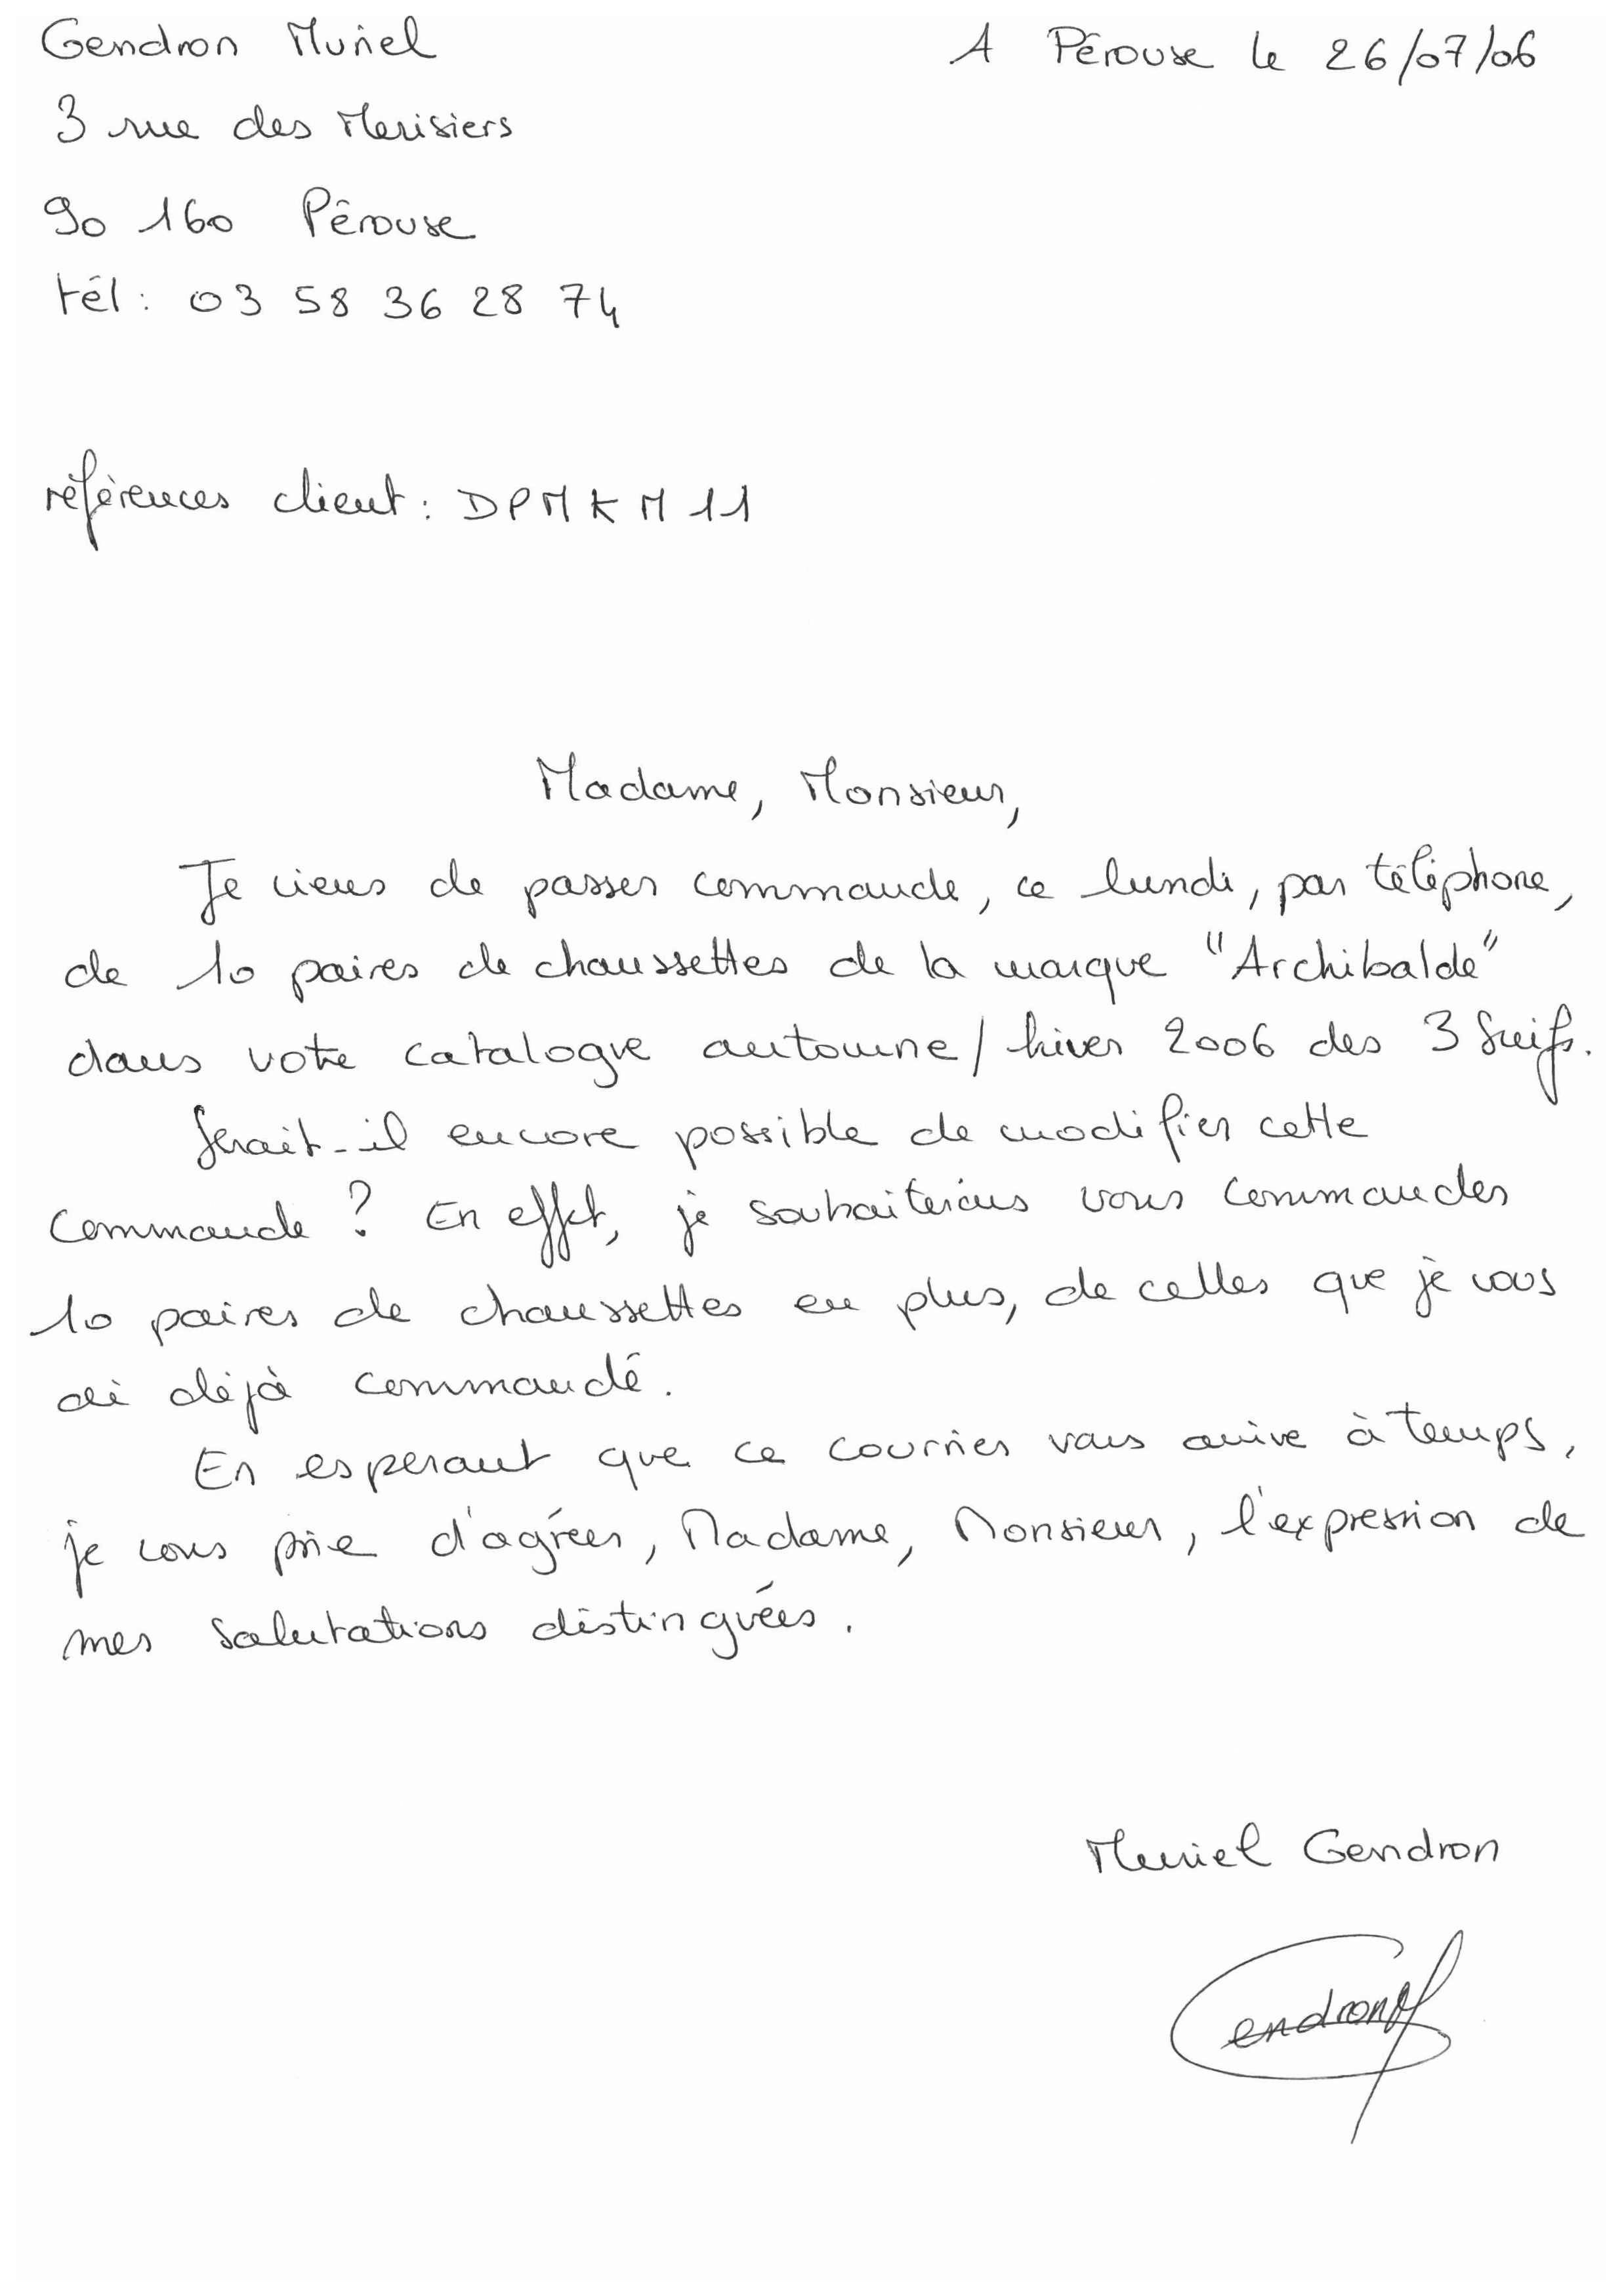 Gendron Muriel
A Pérouse le 26/07/06
3 rue des Merisiers
90 160 Pérouse
tél : 03 58 36 28 74
références client : DPMKM11
Madame, Monsieur,
Je viens de passer commande, ce lundi, par téléphone,
de 10 paires de chaussettes de la marque "Archibalde"
dans votre catalogue automne/hiver 2006 des 3 Suifs.
Serait-il encore possible de modifier cette
commande ? En effet, je souhaiterais vous commander
10 paires de chaussettes en plus, de celles que je vous
ai déjà commandé.
En esperant que ce courrier vous arrive à temps,
je vous prie d'agréer, Madame, Monsieur, l'expression de
mes salutations distinguées.
Muriel Gendron
Gendron